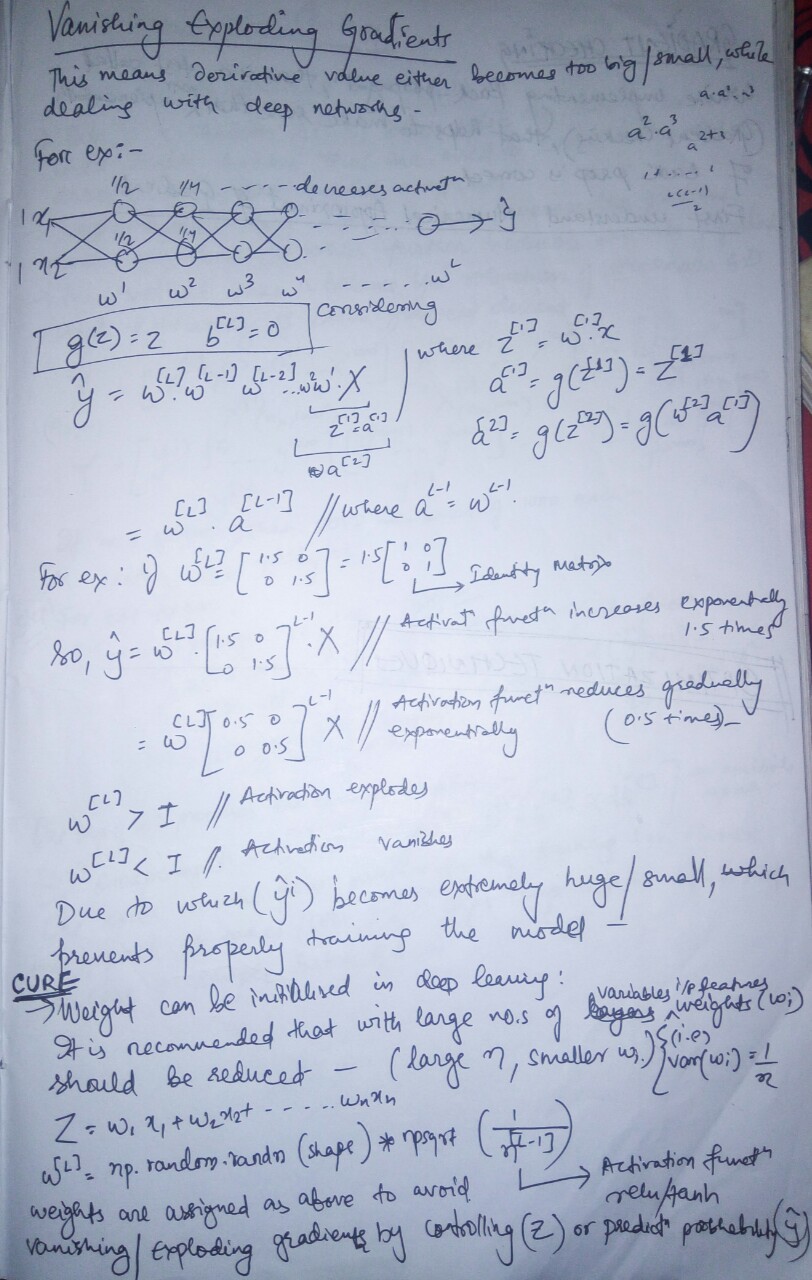 Vanishing Exploding Gradients
This means derivative value either becomes too big/small, while
dealing with deep networks -
a² . a³
a²⁺³
For ex:-
1/2 1/4 - - - - - decreases activatⁿ
1 x₁ ŷ
1/2 1/4
1 x₂
w¹ w² w³ w⁴ - - - - - w^L
g(z) = z b^[L] = 0 considering
ŷ = w^[L] w^[L-1] w^[L-2] ... w² w¹ . X
z^[1] = a^[1]
a^[2]
where z^[1] = w^[1] . x
a^[1] = g(z^[1]) = z^[1]
a^[2] = g(z^[2]) = g(w^[2] a^[1])
= w^[L] . a^[L-1] // where a^L-1 = w^L-1.
For ex: if w^[L] = [1.5 0 0 1.5] = 1.5 [1 0 0 1] → Identity Matrix
so, ŷ = w^[L] . [1.5 0 0 1.5]^L-1 . X // Activatⁿ functⁿ increases exponentially
1.5 times
= w^[L] [0.5 0 0 0.5]^L-1 X // Activation functⁿ reduces gradually
exponentially (0.5 times) -
w^[L] > I // Activation explodes
w^[L] < I //. Activation vanishes
Due to which (ŷi) becomes extremely huge/small, which
prevents properly training the model -
CURE
→ Weight can be initialised in deep learning:
variables i/p features
It is recommended that with large no.s of layers weights (wi)
should be reduced - (large n, smaller wi.) {(i.e) var(wi) = 1/n
Z = w₁ x₁ + w₂ x₂ + - - - - .. wₙ xₙ
w^[L] = np.random.randn (shape) * npsqrt (1/n^[L-1])
→ Activation functⁿ
relu/tanh
weights are assigned as above to avoid
vanishing/exploding gradients by controlling (Z) or predictⁿ probability (ŷ)